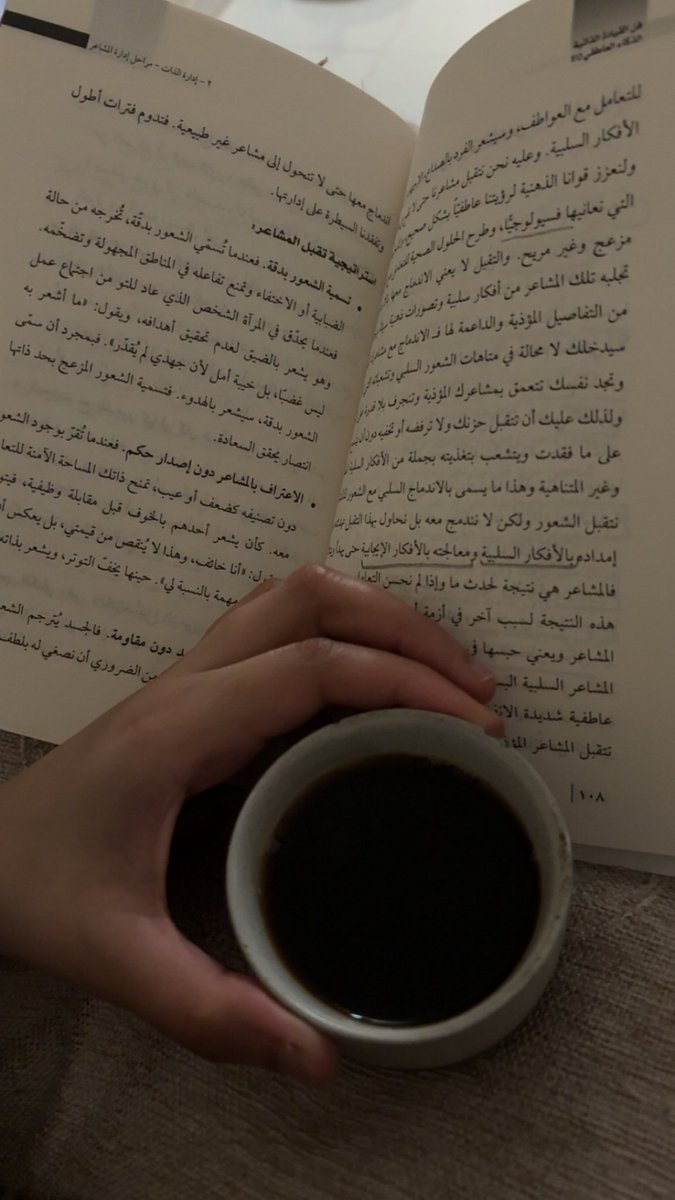 فن القيادة الذاتية
الذكاء العاطفي EQ
للتعامل مع العواطف، وسيشعر الفرد بالصداع
الأفكار السلبية. وعليه نحن نتقبل مشاعرنا حتى لا
ولنعزز قوانا الذهنية لرؤيتنا عاطفيًّا بشكل صحيح
التي نعانيها فسيولوجيًّا، وطرح الحلول الصحية للتعامل
مزعج وغير مريح. والتقبل لا يعني الاندماج معها
تجلبه تلك المشاعر من أفكار سلبية وتصورات ذهنية
من التفاصيل المؤذية والداعمة لها فـ الاندماج مع
سيدخلك لا محالة في متاهات الشعور السلبي
وتجد نفسك تتعمق بمشاعرك المؤذية وتنجرف بلا قدرة
ولذلك عليك أن تتقبل حزنك ولا ترفضه أو تخفيه دون أن
على ما فقدت ويتشعب بتغذيته بجملة من الأفكار
وغير المتناهية وهذا ما يسمى بالاندماج السلبي مع الشعور
نتقبل الشعور ولكن لا نندمج معه بل نحاول بهذا التقبل
إمداده بالأفكار السلبية ومعالجته بالأفكار الإيجابية حتى يهدأ
فالمشاعر هي نتيجة لحدث ما وإذا لم نحسن
هذه النتيجة لسبب آخر في أزمة
المشاعر ويعني حبسها
المشاعر السلبية
عاطفية شديدة
تتقبل المشاعر
١٠٨
٢ - إدارة الذات - مراحل إدارة المشاعر
اندماج معها حتى لا تتحول إلى مشاعر غير طبيعية. فتدوم فترات أطول
وتفقدنا السيطرة على إدارتها.
استراتيجية تقبل المشاعر:
• تسمية الشعور بدقة. فعندما تُسمّي الشعور بدقّة، تُخرجه من حالة
الضبابية أو الاختفاء وتمنع تفاعله في المناطق المجهولة وتضخّمه.
فعندما يحدّق في المرآة الشخص الذي عاد للتو من اجتماع عمل
وهو يشعر بالضيق لعدم تحقيق أهدافه، ويقول: «ما أشعر به
ليس غضبًا، بل خيبة أمل لأن جهدي لم يُقدّر». فبمجرد أن سمّى
الشعور بدقة، سيشعر بالهدوء. فتسمية الشعور المزعج بحد ذاتها
انتصار يحقق السعادة.
• الاعتراف بالمشاعر دون إصدار حكم. فعندما تُقرّ بوجود
دون تصنيفه كضعف أو عيب، تمنح ذاتك المساحة الآمنة
معه. كأن يشعر أحدهم بالخوف قبل مقابلة وظيفية،
«أنا خائف، وهذا لا يُنقص من قيمتي، بل يعكس
مهمة بالنسبة لي». حينها يخفّ التوتر، ويشعر
دون مقاومة. فالجسد يُترجم
من الضروري أن نصغي له